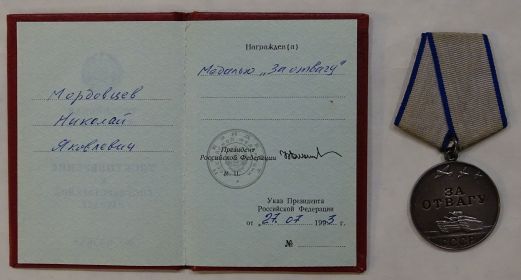 Мордовцев
Николай
Яковлевич
Награжден(а)
Медалью „За отвагу"
Президент
Российской Федерации
М. П.
Указ Президента
Российской Федерации
от „27" 07 1993 г.
№
ЗА
ОТВАГУ
СССР